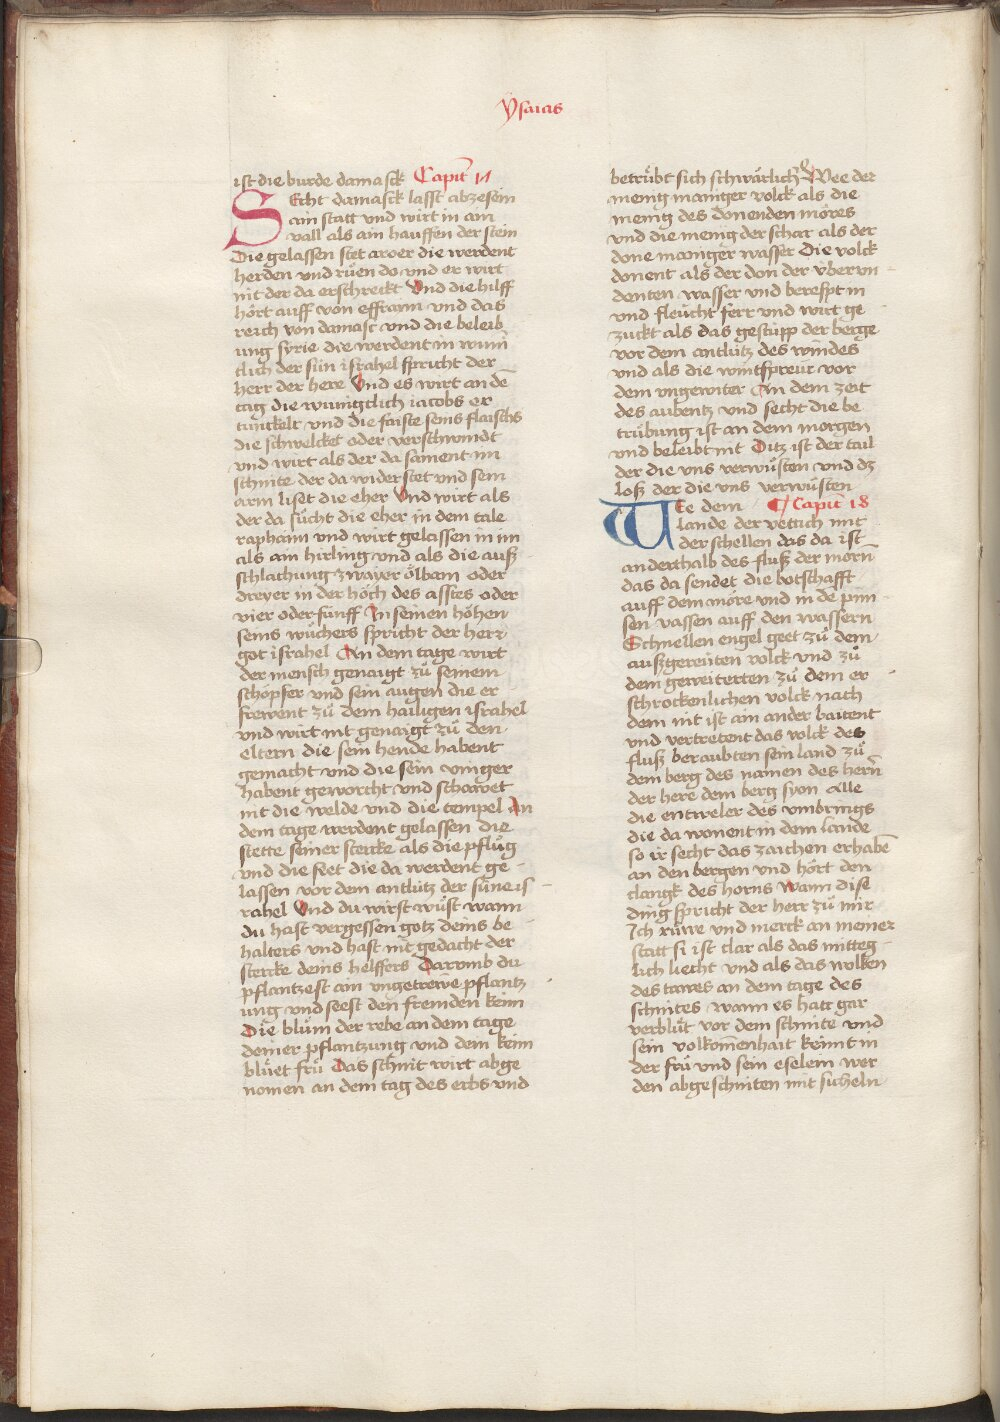 Ysaias
ist die burde damasck Capit 17
SEcht damasck lasst abzesein
ain statt vnd wirt in am
vall als ain hauffen der stein
Die gelassen stet aroer die werdent
herden vnd ruͤen do vnd er wirt
nit der da erschreckt Vnd die hilff
hoͤrt auff von effraim vnd das
reich von damasc vnd die beleib
ung syrie die werdent in wunn
tlich der suͤn israhel spricht der
herr der here Vnd es wirt an dē
tag die wunigtlich iacobs er
tunckelt vnd die faiste seins flaischs
die schwelcket oder verschwindt
vnd wirt als der da sament im
schnite der da widerstet vnd sein
arm liset die eher Vnd wirt als
der da suͤcht die eher in dem tale
raphaim vnd wirt gelassen in im
als ain hirling vnd als die auß
schlachung zwayer oͤlbam oder
dreyer in der hoͤch des asstes oder
vier oder fünff In seinen hoͤhen
seins wuͤchers spricht der herr
got israhel An dem tage wirt
der mensch genaigt zuͦ seinem
schoͤpfer vnd sein augen die er
frewent zuͦ dem hailigen israhel
vnd wirt nit genaigt zuͦ den
eltern die sein hende habent
gemacht vnd die sein vinger
habent geworcht vnd schawet
nit die welde vnd die tempel An
dem tage werdent gelassen die
stette seiner stercke als die pfluͦg
vnd die seet die da werdent ge
lassen vor dem antlütz der süne is
rahel Vnd du wirst wuͤst wann
du hast vergessen gotz deins be
halters vnd hast nit gedacht der
stercke deins helffers Darvmb du
pflantzest ain vngetrewe pflantz
ung vnd seest den fremden keim
Die bluͦm der rebe an dem tage
deiner pflantzung vnd dein keim
bluͤet fruͤ Das schnit wirt abge
nomen an dem tag des erbs vnd
betruͤbt sich schwaͤrlich Wee der
menig maniger volck als die
menig des donenden moͤres
vnd die menig der schar als der
done maniger wasser Die volck
donent als der don der vͤbervn
denten wasser vnd berespt in
vnd fleücht ferr vnd wirt ge
zuckt als das gestüpp der berge
vor dem antlütz des windes
vnd als die wintspreür vor
dem vngewiter In dem zeit
des aubentz vnd secht die be
truͤbung ist an dem morgen
vnd beleibt nit Ditz ist der tail
der die vns verwuͤsten vnd dz
loß der die vns verwuͤsten
WEe dem Capit 18
lande der vettich mit
der schellen das da ist
anderthalb des fluß der morn
das da sendet die botschafft
auff dem moͤre vnd in dē pini
sen vassen auff den wassern
Schnellen engel geet zuͦ dem
außgereuten volck vnd zuͦ
dem geweiterten zuͦ dem er
schrockenlichen volck nach
dem nit ist ain ander baitent
vnd vertretent das volck des
fluß beraubten sein land zuͦ
dem berg des namen des hern
der here dem berg syon Alle
die entweler des vmbrings
die da wonent in dem lande
so ir secht das zaichen erhabē
an den bergen vnd hoͤrt den
clangk des horns Wann dise
ding spricht der herr zuͦ mir
Ich ruͤwe vnd merck an meiner
statt si ist clar als das mitteg
lich liecht vnd als das wolken
des tawes an dem tage des
schnites wann es hatt gar
verbluͤt vor dem schnite vnd
sein volkomenhait keimt in
der fruͤ vnd sein eselein wer
den abgeschniten mit sicheln